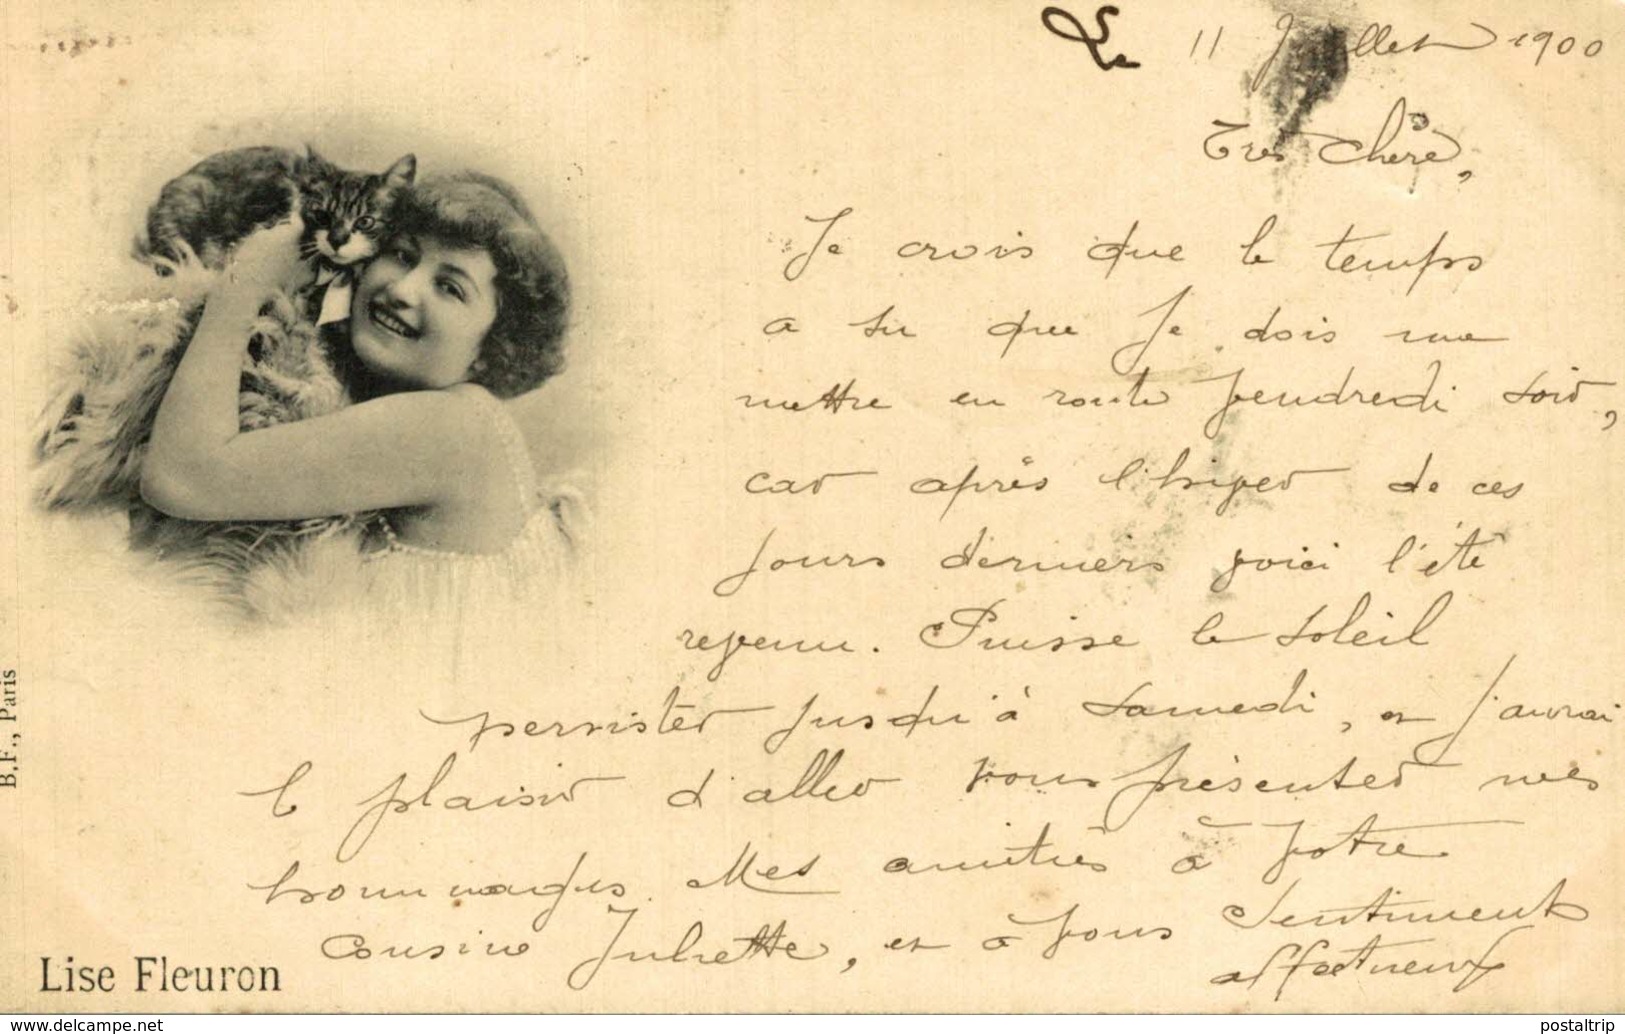 Le 11 Juillet 1900
Très Chère,
Je crois que le temps
a su que je dois me
mettre en route vendredi soir,
car après l'hiver de ces
jours derniers voici l'été
revenu. Puisse le soleil
persister jusqu'à Samedi, et j'aurai
le plaisir d'aller vous présenter mes
hommages. Mes amitiés à votre
cousine Juliette, et à vous Sentiments
affectueux
Lise Fleuron
B.F., Paris
www.delcampe.net
postaltrip